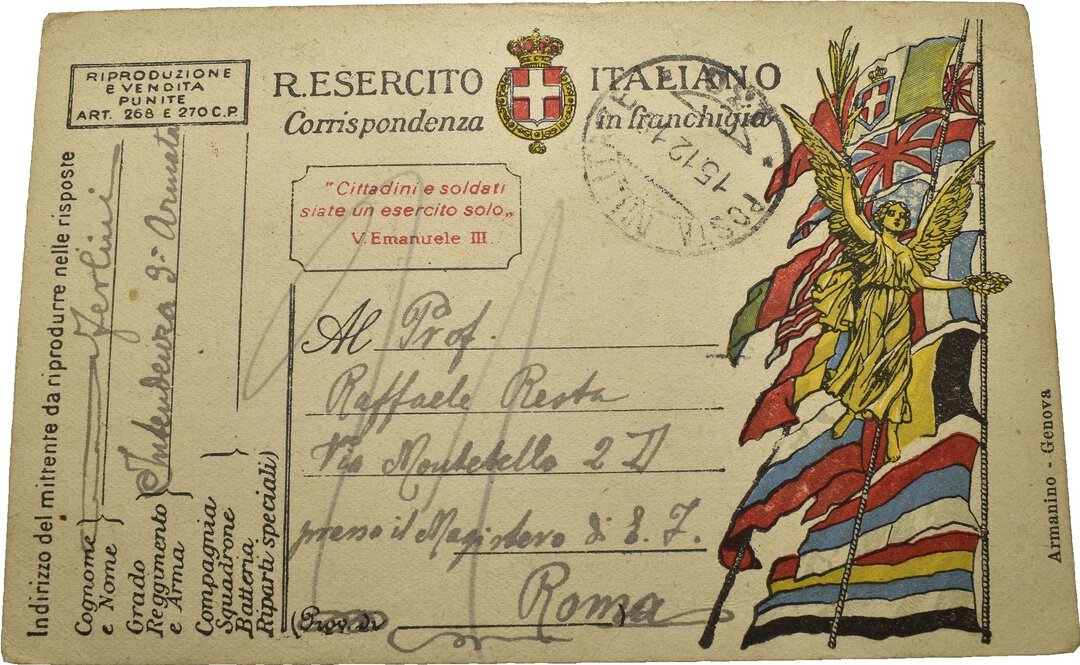 RIPRODUZIONE
E VENDITA
PUNITE
ART. 268 E 270 C.P.
R.ESERCITO ITALIANO
Corrispondenza in franchigia
POSTA MILITARE
15.12.1
"Cittadini e soldati
siate un esercito solo„
V. Emanuele III
Al Prof.
Raffaele Resta
Via Montebello 2 D
presso il Magistero di E. F.
Roma
(Prov di )
Indirizzo del mittente da riprodurre nelle risposte
Cognome
e Nome
Grado
Reggimento
e Arma
Intendenza 9a Armata
Compagnia
Squadrone
Batteria
Riparti speciali)
Armanino - Genova